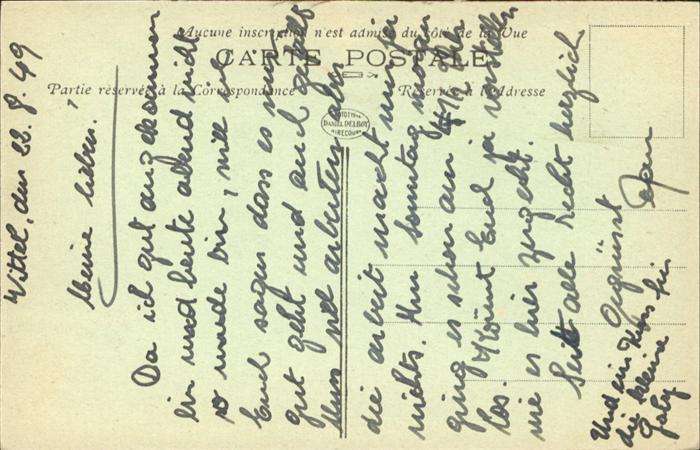 Aucune inscription n'est admise du côté de la Vue
CARTE POSTALE
Partie réservée à la Correspondance
Réservée à l'Adresse
DANIEL DELBOY
MIRECOURT
Vittel, den 22.8.49
Meine lieben!
Da ich gut angekommen
bin und heute abend nicht
so müde bin, will ich
Euch sagen dass es mir
gut geht und auch gefällt
Muss viel arbeiten aber
die arbeit macht mir
nichts. Um Sonntag morgen
ging es schon am
los. Könnt Euch ja vorstellen
wie es hier zugeht.
Seid alle recht herzlich
Gegrüsst
Und ein Kuss für
die kleine
Gaby